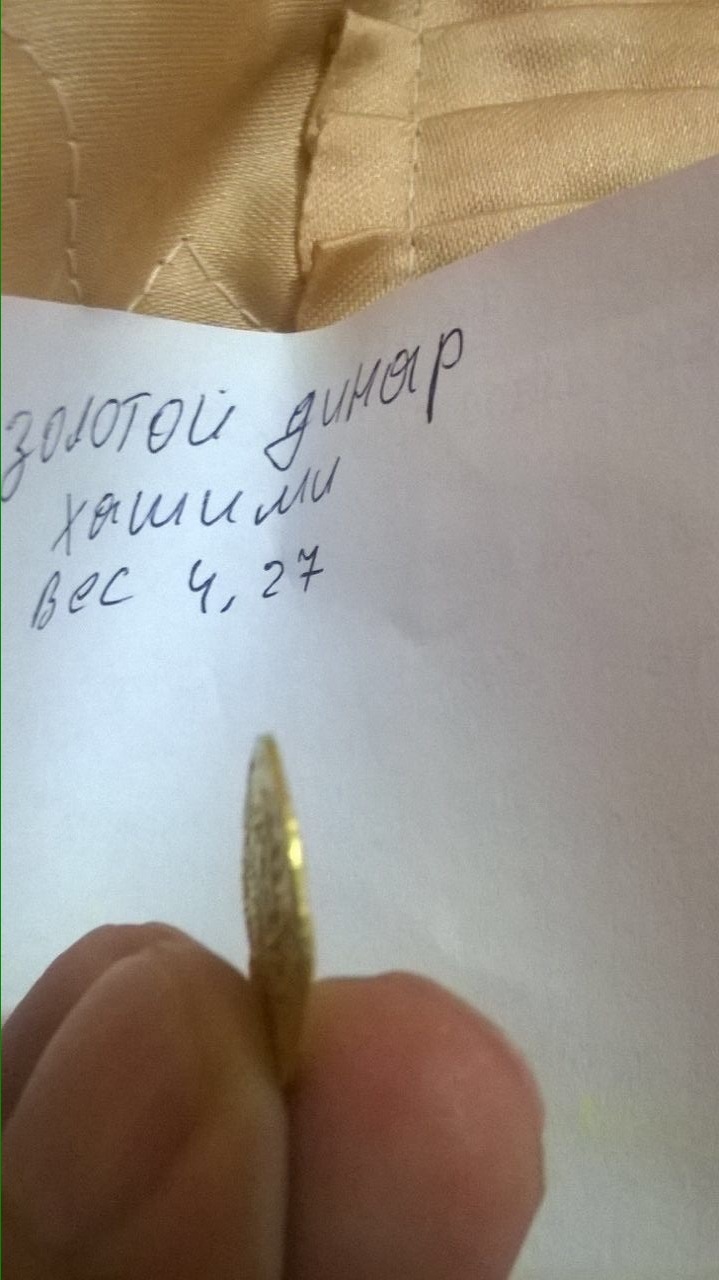 золотой динар
хашими
вес 4,27